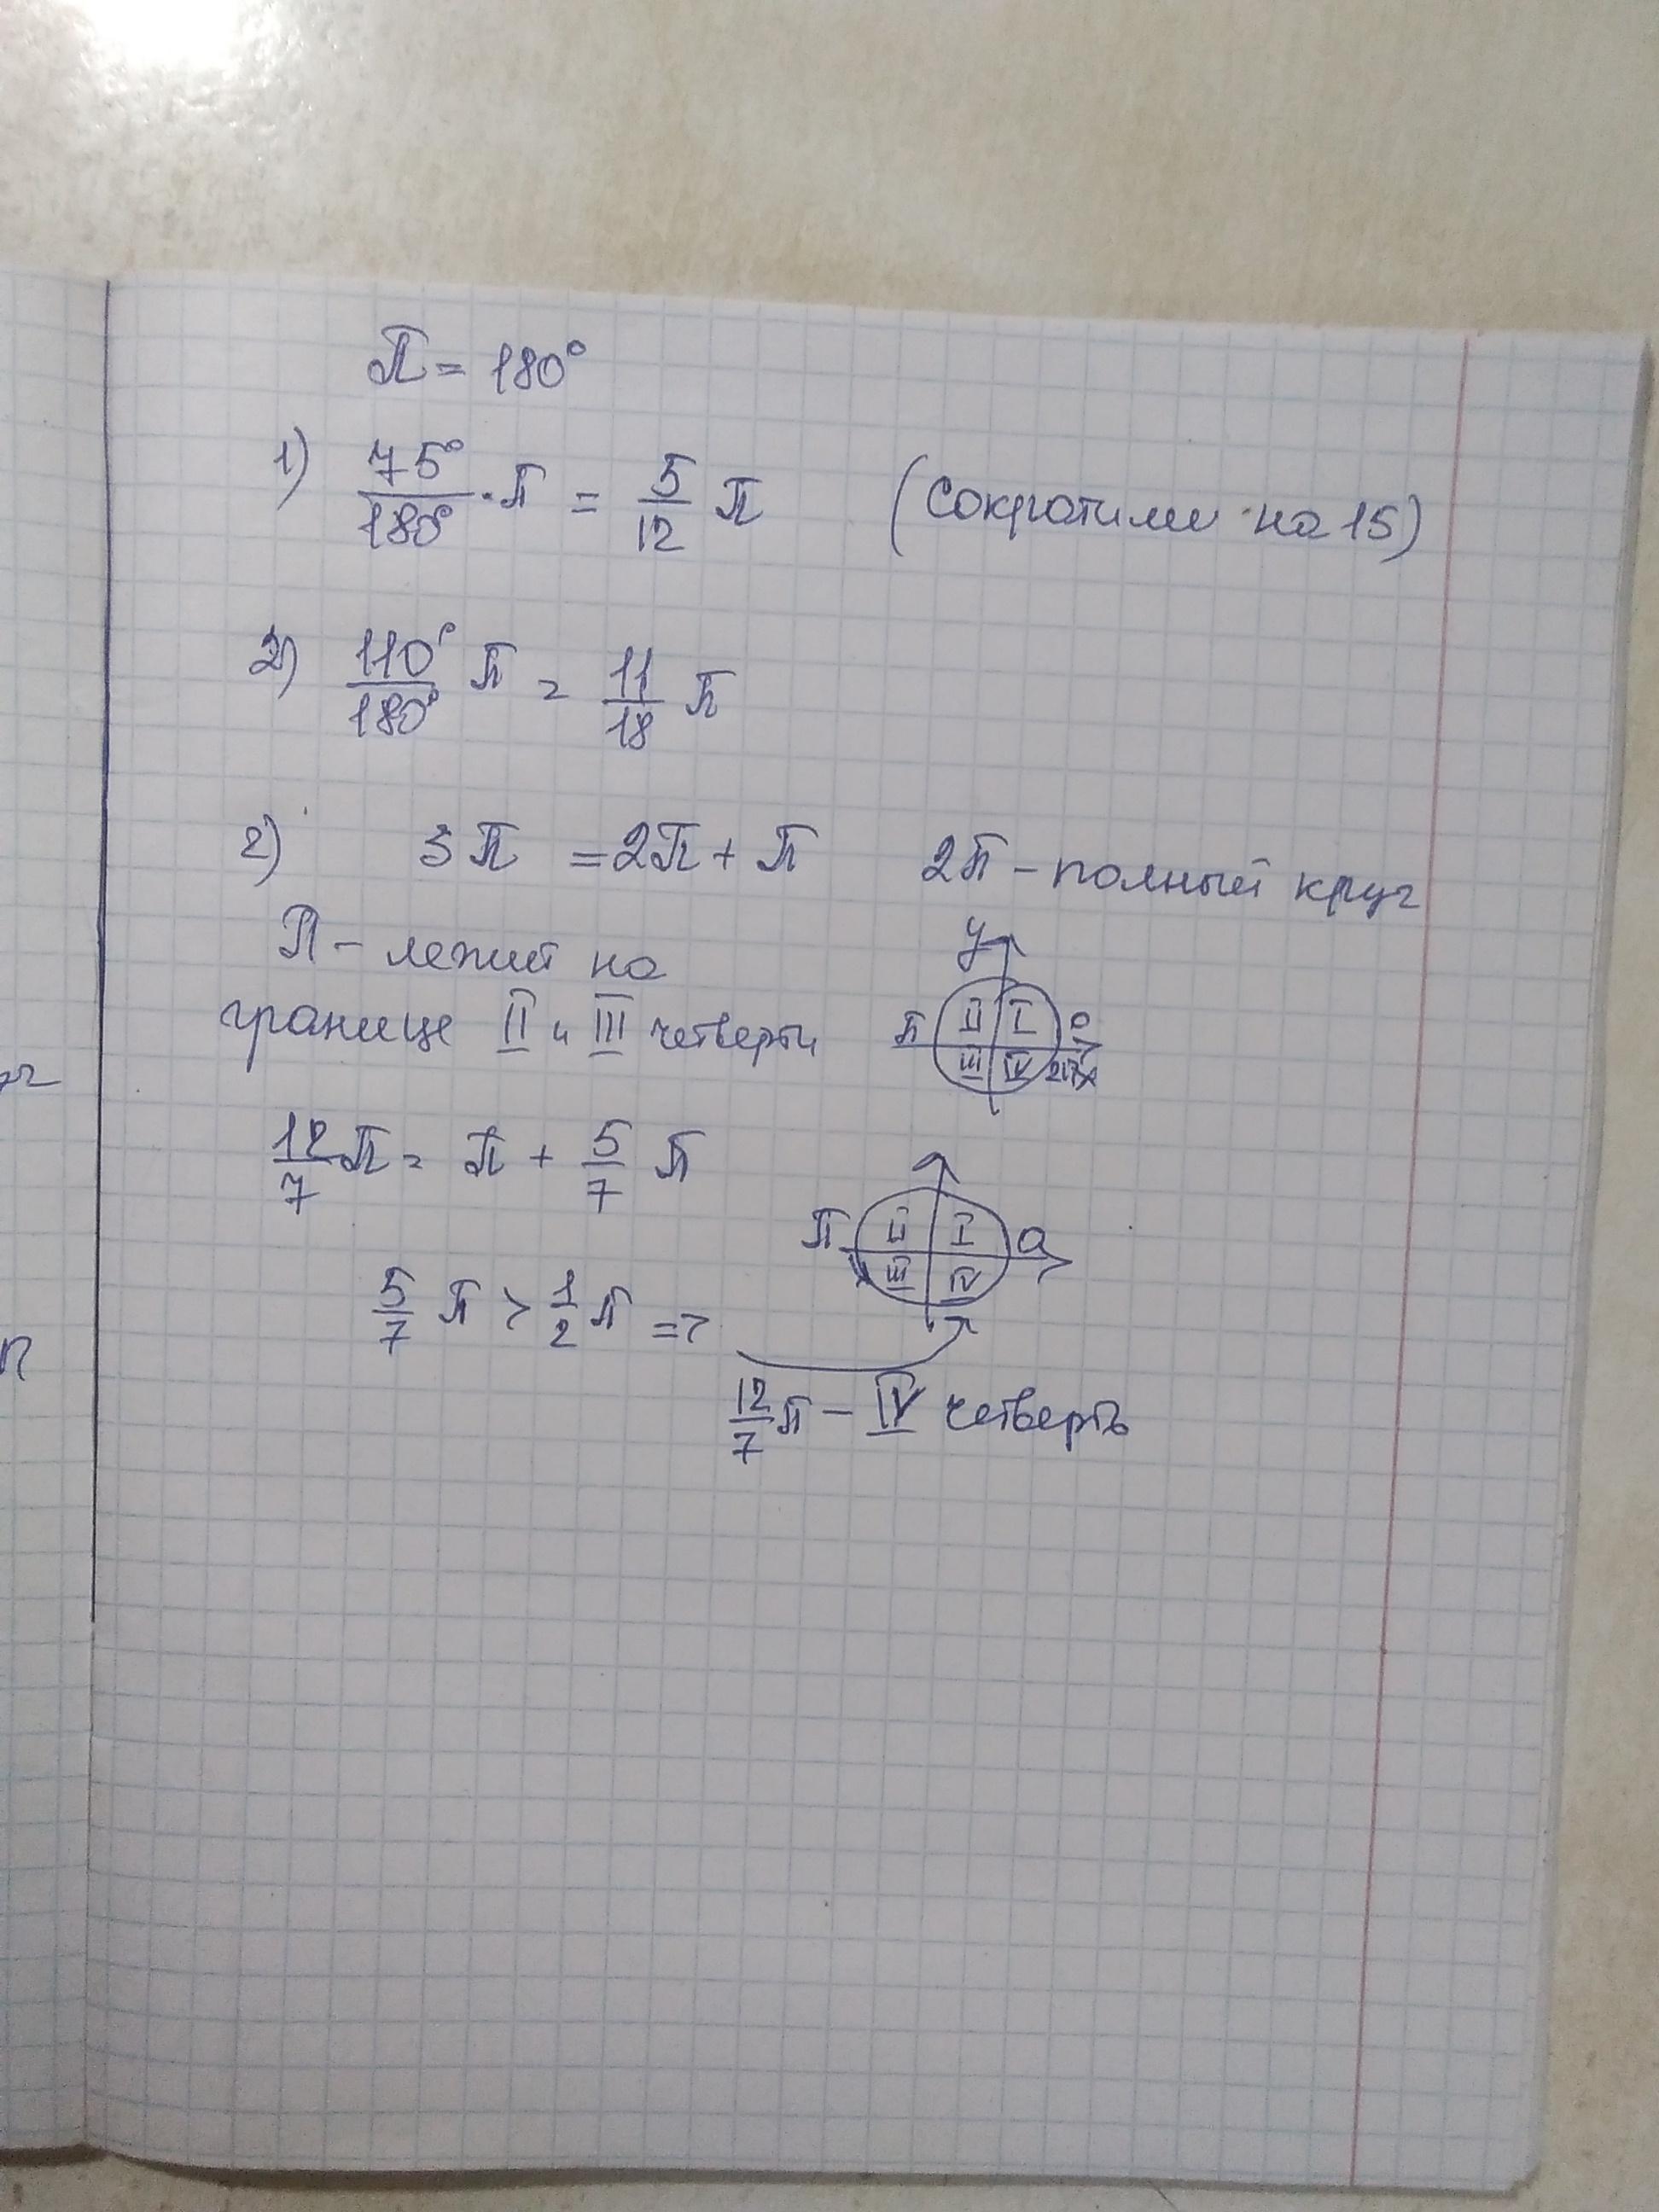 π = 180°
1) 75°/180° · π = 5/12 π (сократили на 15)
2) 110°/180° π = 11/18 π
2) 3π = 2π + π 2π – полный круг
π – лежит на
границе II и III четверти
y
π II I 0
III IV 2π x
12/7 π = π + 5/7 π
π II I 0
III IV
5/7 π > 1/2 π =>
12/7 π – IV четверть